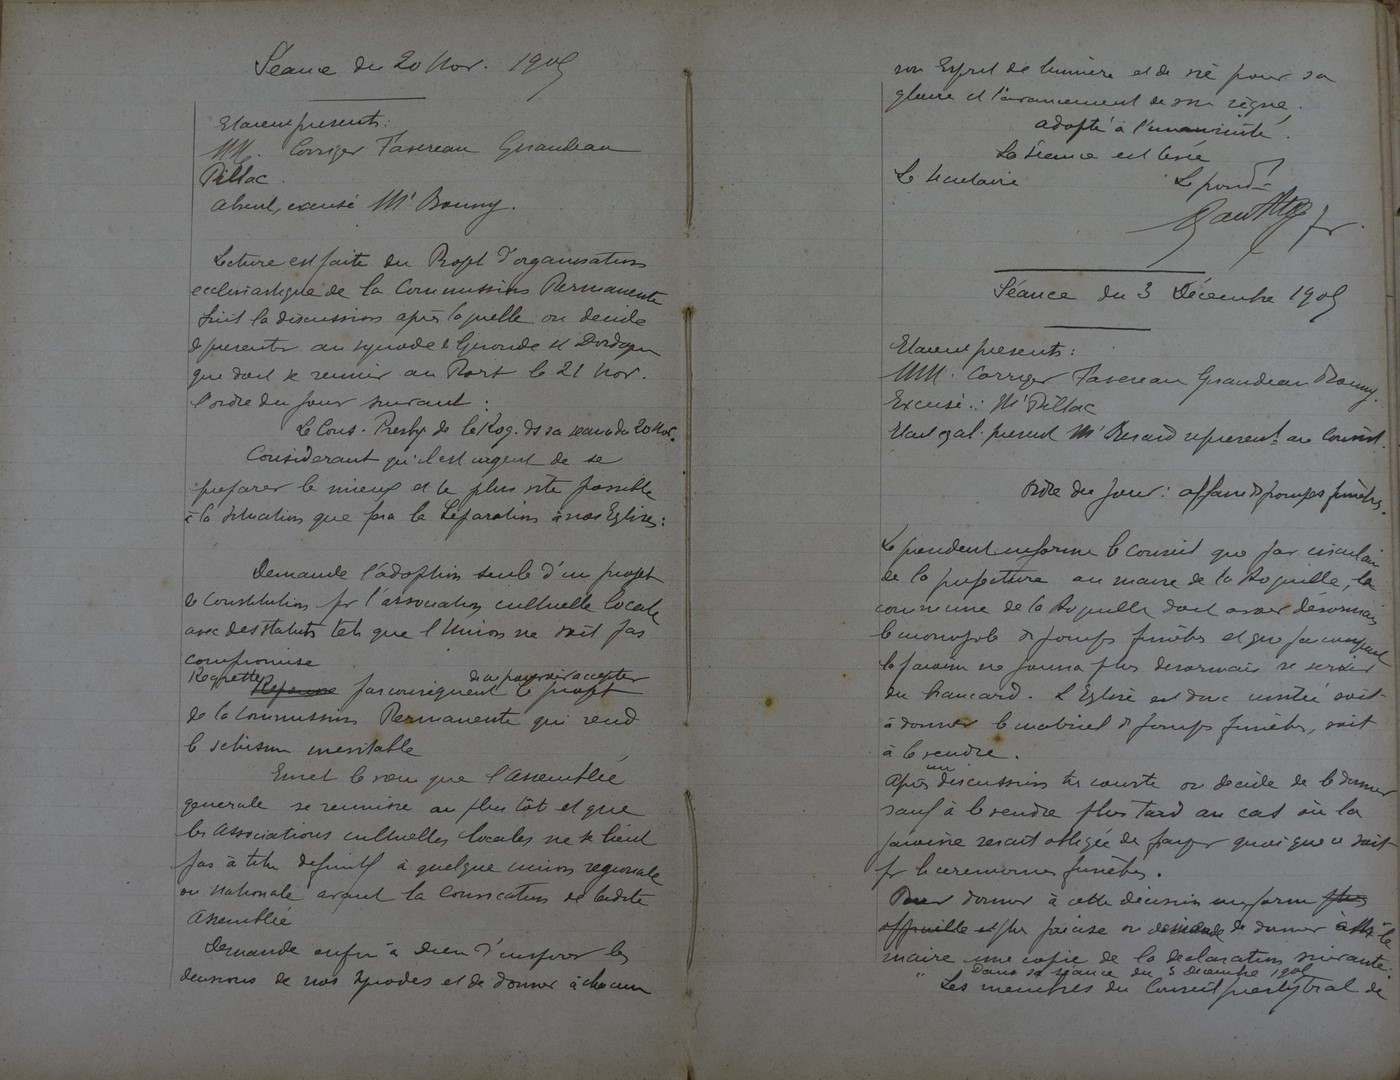 Séance du 20 Nov. 1905
Etaient presents:
MM. Corriger Favereau Giraudeau
Pillac
absent, excusé Mr Bonny.
Lecture est faite du Projet d'organisation
ecclesiastique de la Commission Permanente
Suit la discussion après laquelle on decide
de presenter au synode de Gironde et Dordogne
que doit se reunir au Port le 21 Nov.
l'ordre du Jour suivant:
Le Cons. Presby. de la Roq. ds sa seance du 20 Nov.
Considerant qu'il est urgent de se
preparer le mieux et le plus vite possible
à la situation que fera la Séparation à nos Eglises:
Demande l'adoption seule d'un projet
de Constitution pr l'association cultuelle locale
avec des statuts tels que l'Union ne soit pas
compromise
Regrette de ne pouvoir accepter
par consequent le projet
de la Commission Permanente qui rend
le schisme inevitable
Emet le vœu que l'Assemblée
generale se reunisse au plus tôt et que
les Associations cultuelles locales ne se lient
pas à titre definitif à quelque union regionale
ou nationale avant la Convocation de ladite
Assemblée
Demande enfin à Dieu d'inspirer les
decisions de nos synodes et de donner à chacun
son Esprit de lumière et de vie pour sa
gloire et l'avancement de son règne.
adopté à l'unanimité.
La séance est levée
Le secretaire Le presidt
Séance du 3 Décembre 1905
Etaient presents:
MM. Corriger Favereau Giraudeau Bonny.
Excusé: Mr Pillac
Etait egal. present Mr Besard represent. au Consist.
Ordre du Jour: affaire de pompes funèbres.
Le president informe le conseil que par circulaire
de la prefecture au maire de la Roquille, la
commune de la Roquille doit avoir désormais
le monopole de pompes funèbres et que par consequent
la paroisse ne pourra plus desormais se servir
du brancard. L'Eglise est donc invitée soit
à donner le materiel de pompes funèbres, soit
à le vendre.
Après une discussion très courte on decide de le donner
sauf à le vendre plus tard au cas où la
paroisse serait obligée de payer quoi que ce soit
pr les ceremonies funèbres.
Pour donner à cette decision une forme plus
officielle et plus precise on demande de donner à Mr le
maire une copie de la declaration suivante.
" Dans sa séance du 3 decembre 1905
Les membres du Conseil presbyteral de